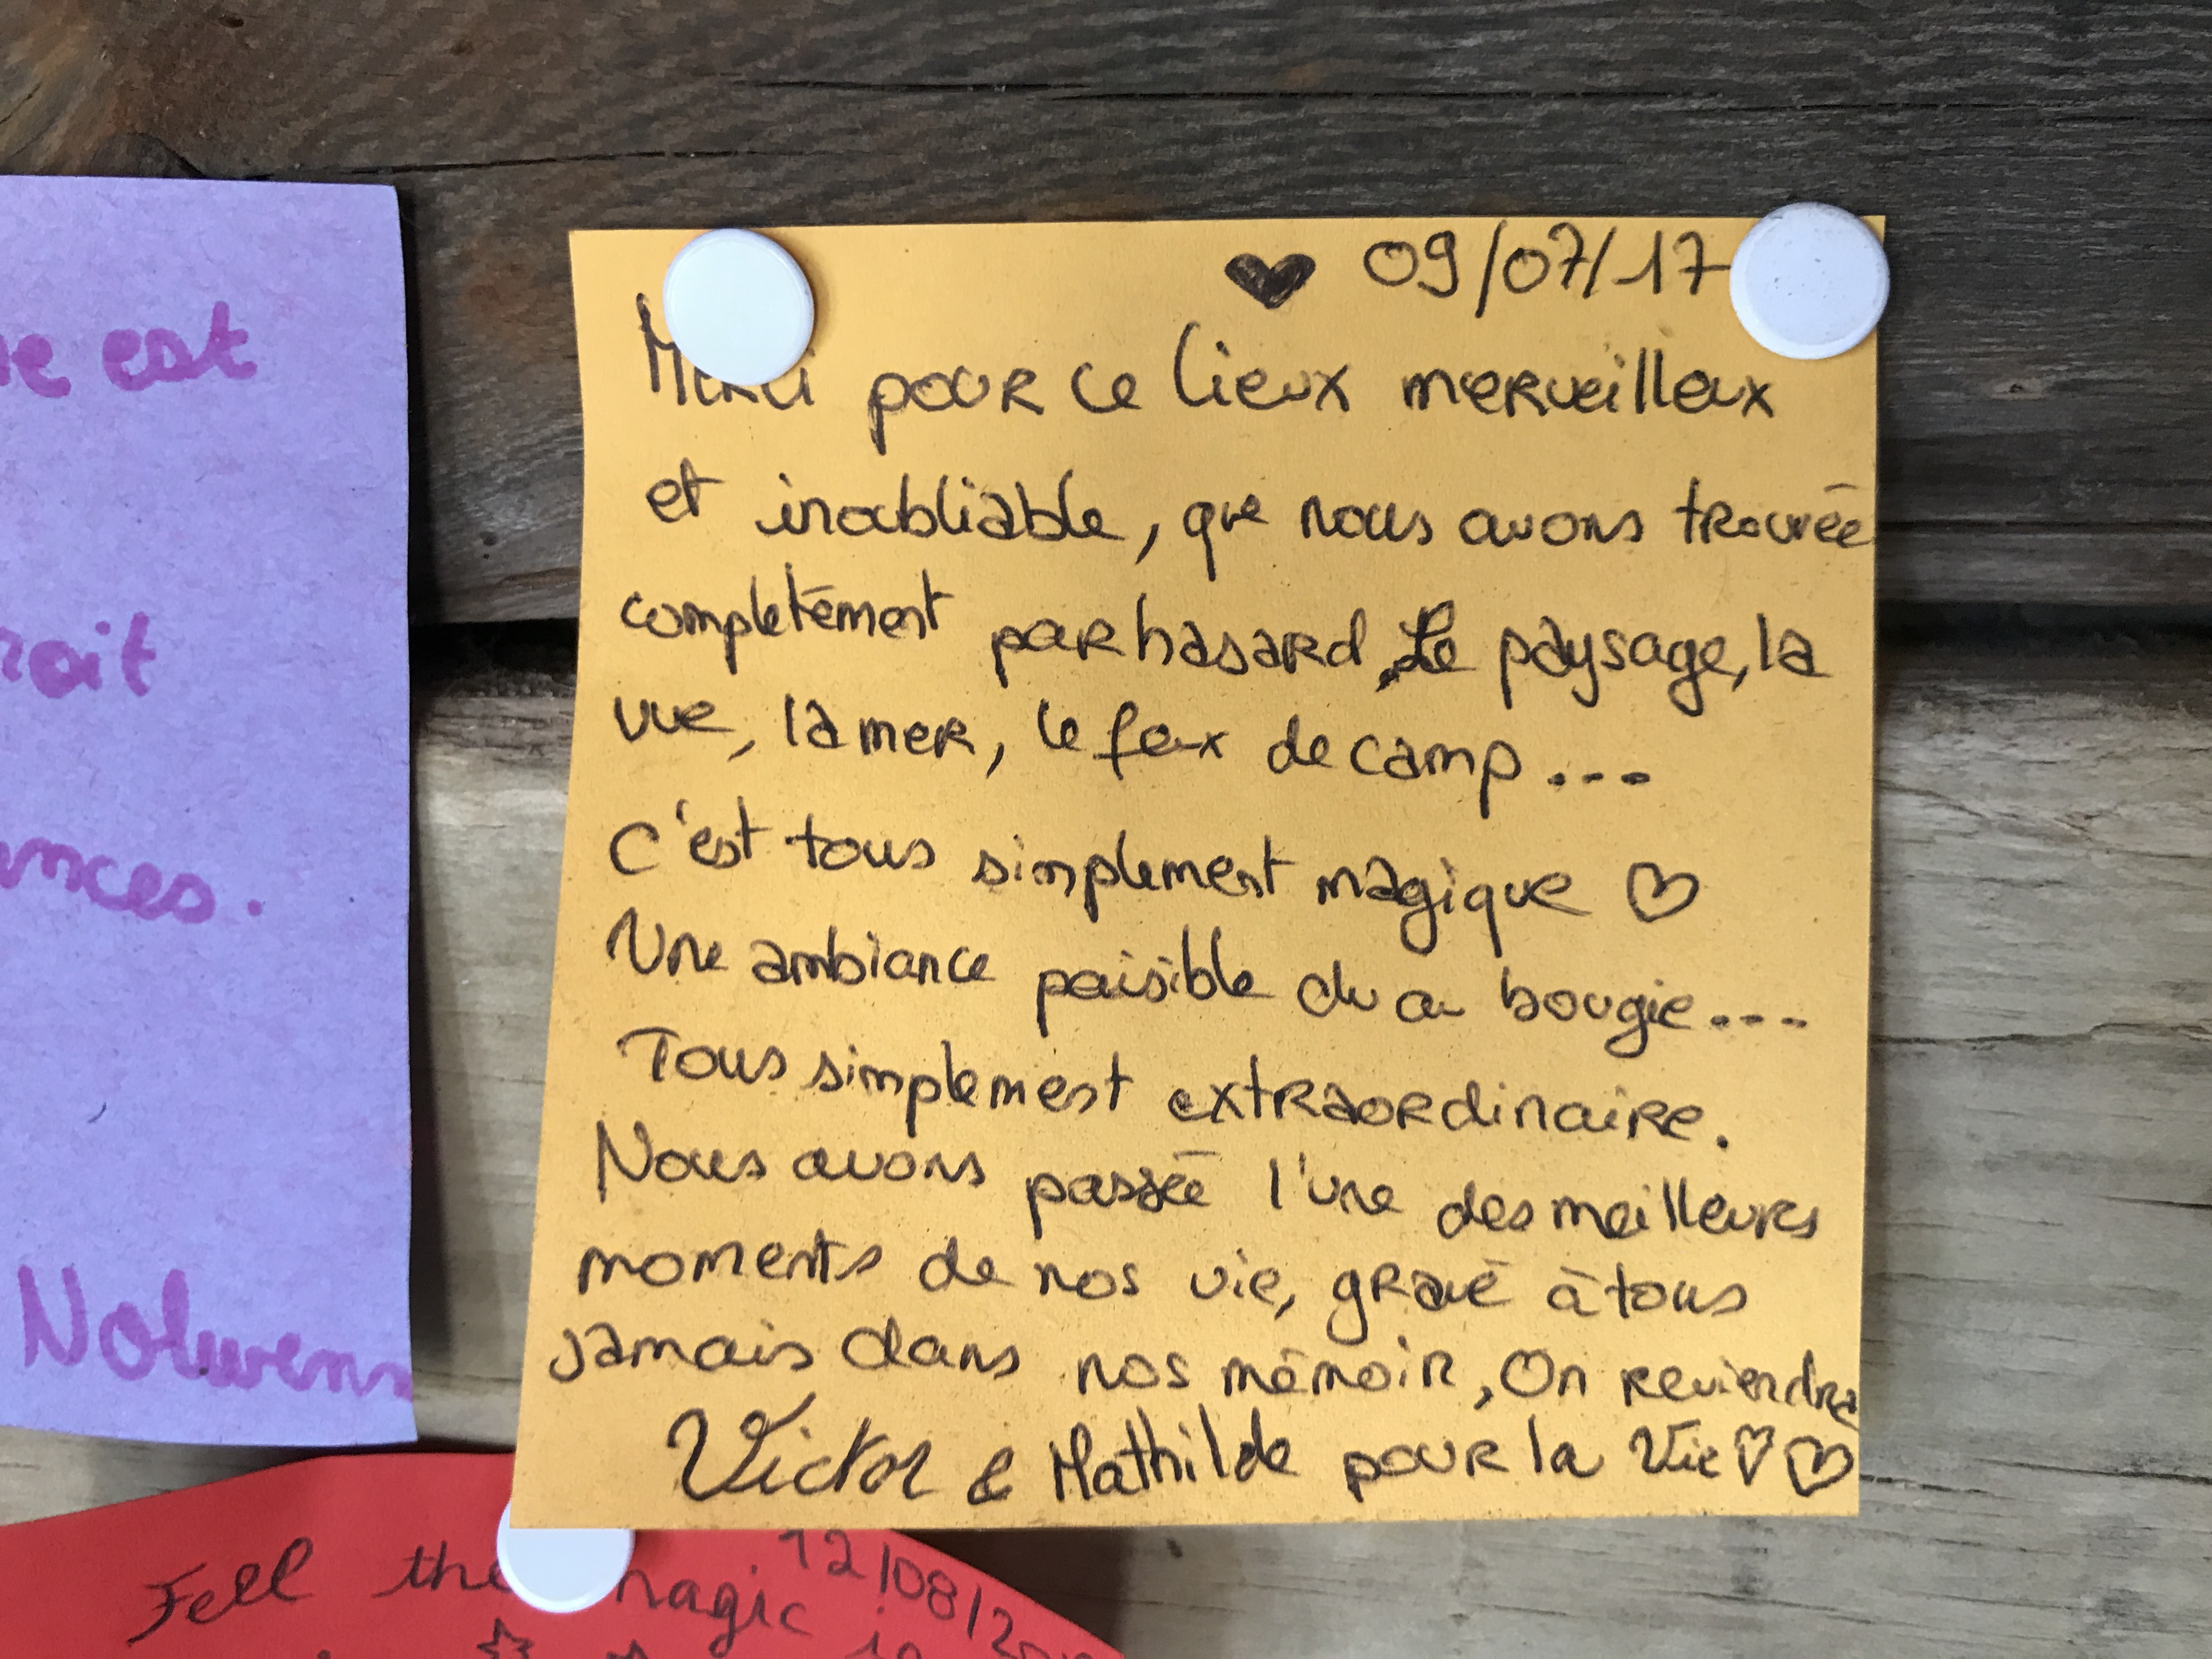 e est
rait
ances.
Nolwenn
♥ 09/07/17
Merci pour ce lieux merveilleux
et inoubliable, que nous avons trouvée
complètement par hasard, Le paysage, la
vue, la mer, le feux de camp...
C'est tous simplement magique ♡
Une ambiance paisible du a bougie....
Tous simplement extraordinaire.
Nous avons passée l'une des meilleurs
moments de nos vie, gravé à tous
jamais dans nos mémoir, On reviendra
Victor & Mathilde pour la Vie ♡♡
Feel the magic 12/08/20